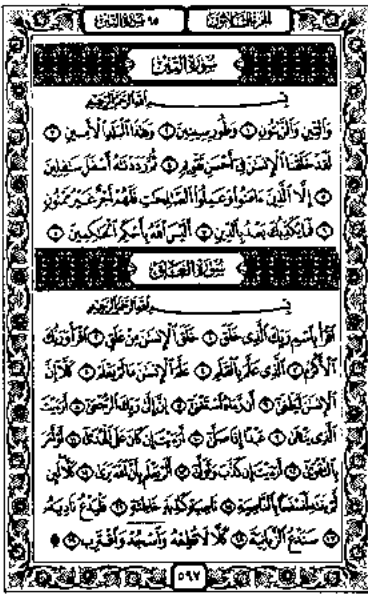 الجزء الثلاثون
٩٥ سورة التين
سورة التين
بسم الله الرحمن الرحيم
وَٱلتِّينِ وَٱلزَّيْتُونِ ١ وَطُورِ سِينِينَ ٢ وَهَٰذَا ٱلْبَلَدِ ٱلْأَمِينِ ٣
لَقَدْ خَلَقْنَا ٱلْإِنسَٰنَ فِىٓ أَحْسَنِ تَقْوِيمٍ ٤ ثُمَّ رَدَدْنَٰهُ أَسْفَلَ سَٰفِلِينَ
٥ إِلَّا ٱلَّذِينَ ءَامَنُوا۟ وَعَمِلُوا۟ ٱلصَّٰلِحَٰتِ فَلَهُمْ أَجْرٌ غَيْرُ مَمْنُونٍ
٦ فَمَا يُكَذِّبُكَ بَعْدُ بِٱلدِّينِ ٧ أَلَيْسَ ٱللَّهُ بِأَحْكَمِ ٱلْحَٰكِمِينَ ٨
سورة العلق
بسم الله الرحمن الرحيم
ٱقْرَأْ بِٱسْمِ رَبِّكَ ٱلَّذِى خَلَقَ ١ خَلَقَ ٱلْإِنسَٰنَ مِنْ عَلَقٍ ٢ ٱقْرَأْ وَرَبُّكَ
ٱلْأَكْرَمُ ٣ ٱلَّذِى عَلَّمَ بِٱلْقَلَمِ ٤ عَلَّمَ ٱلْإِنسَٰنَ مَا لَمْ يَعْلَمْ ٥ كَلَّآ إِنَّ
ٱلْإِنسَٰنَ لَيَطْغَىٰٓ ٦ أَن رَّءَاهُ ٱسْتَغْنَىٰٓ ٧ إِنَّ إِلَىٰ رَبِّكَ ٱلرُّجْعَىٰٓ ٨ أَرَءَيْتَ
ٱلَّذِى يَنْهَىٰ ٩ عَبْدًا إِذَا صَلَّىٰٓ ١٠ أَرَءَيْتَ إِن كَانَ عَلَى ٱلْهُدَىٰٓ ١١ أَوْ أَمَرَ
بِٱلتَّقْوَىٰٓ ١٢ أَرَءَيْتَ إِن كَذَّبَ وَتَوَلَّىٰٓ ١٣ أَلَمْ يَعْلَم بِأَنَّ ٱللَّهَ يَرَىٰ ١٤ كَلَّا لَئِن
لَّمْ يَنتَهِ لَنَسْفَعًۢا بِٱلنَّاصِيَةِ ١٥ نَاصِيَةٍ كَٰذِبَةٍ خَاطِئَةٍ ١٦ فَلْيَدْعُ نَادِيَهُۥ
١٧ سَنَدْعُ ٱلزَّبَانِيَةَ ١٨ كَلَّا لَا تُطِعْهُ وَٱسْجُدْ وَٱقْتَرِب ۩ ١٩
٥٩٧